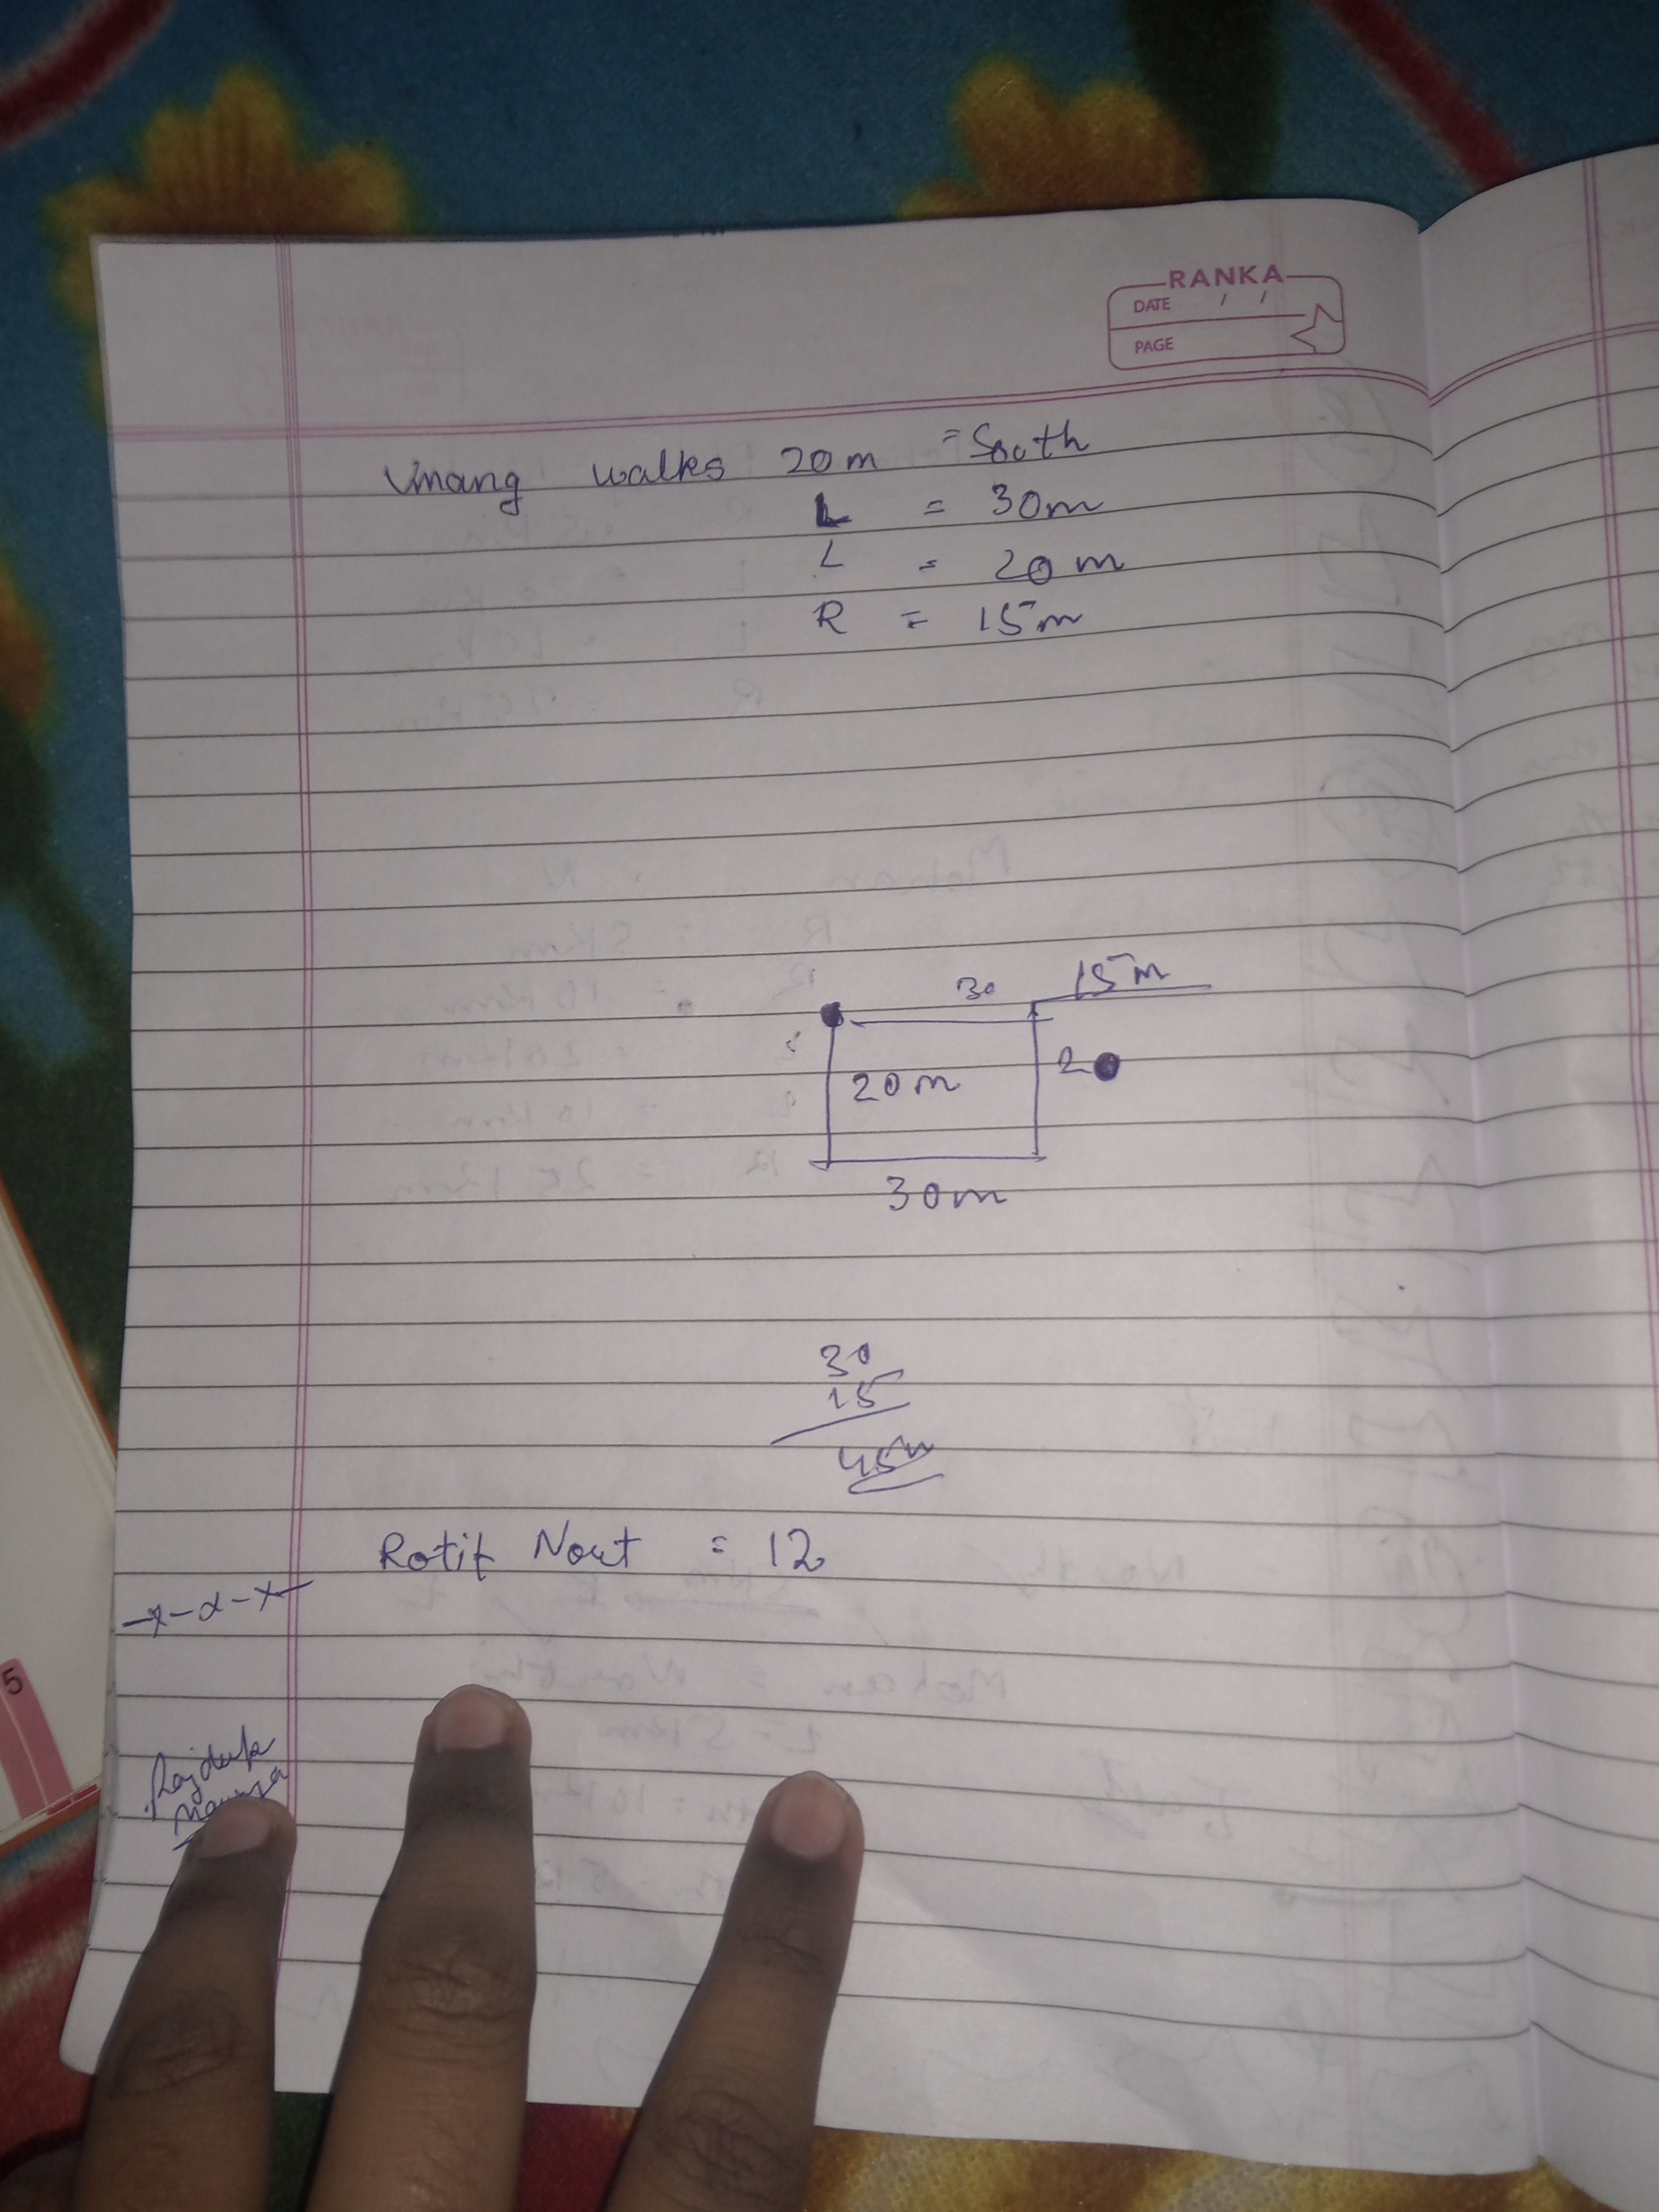 RANKA
DATE / /
PAGE
Umang walks 20m = South
L = 30m
L = 20m
R = 15m
30 15m
20m 20
30m
30
15
45m
Rotit Nout = 12
-x-x-x-
5